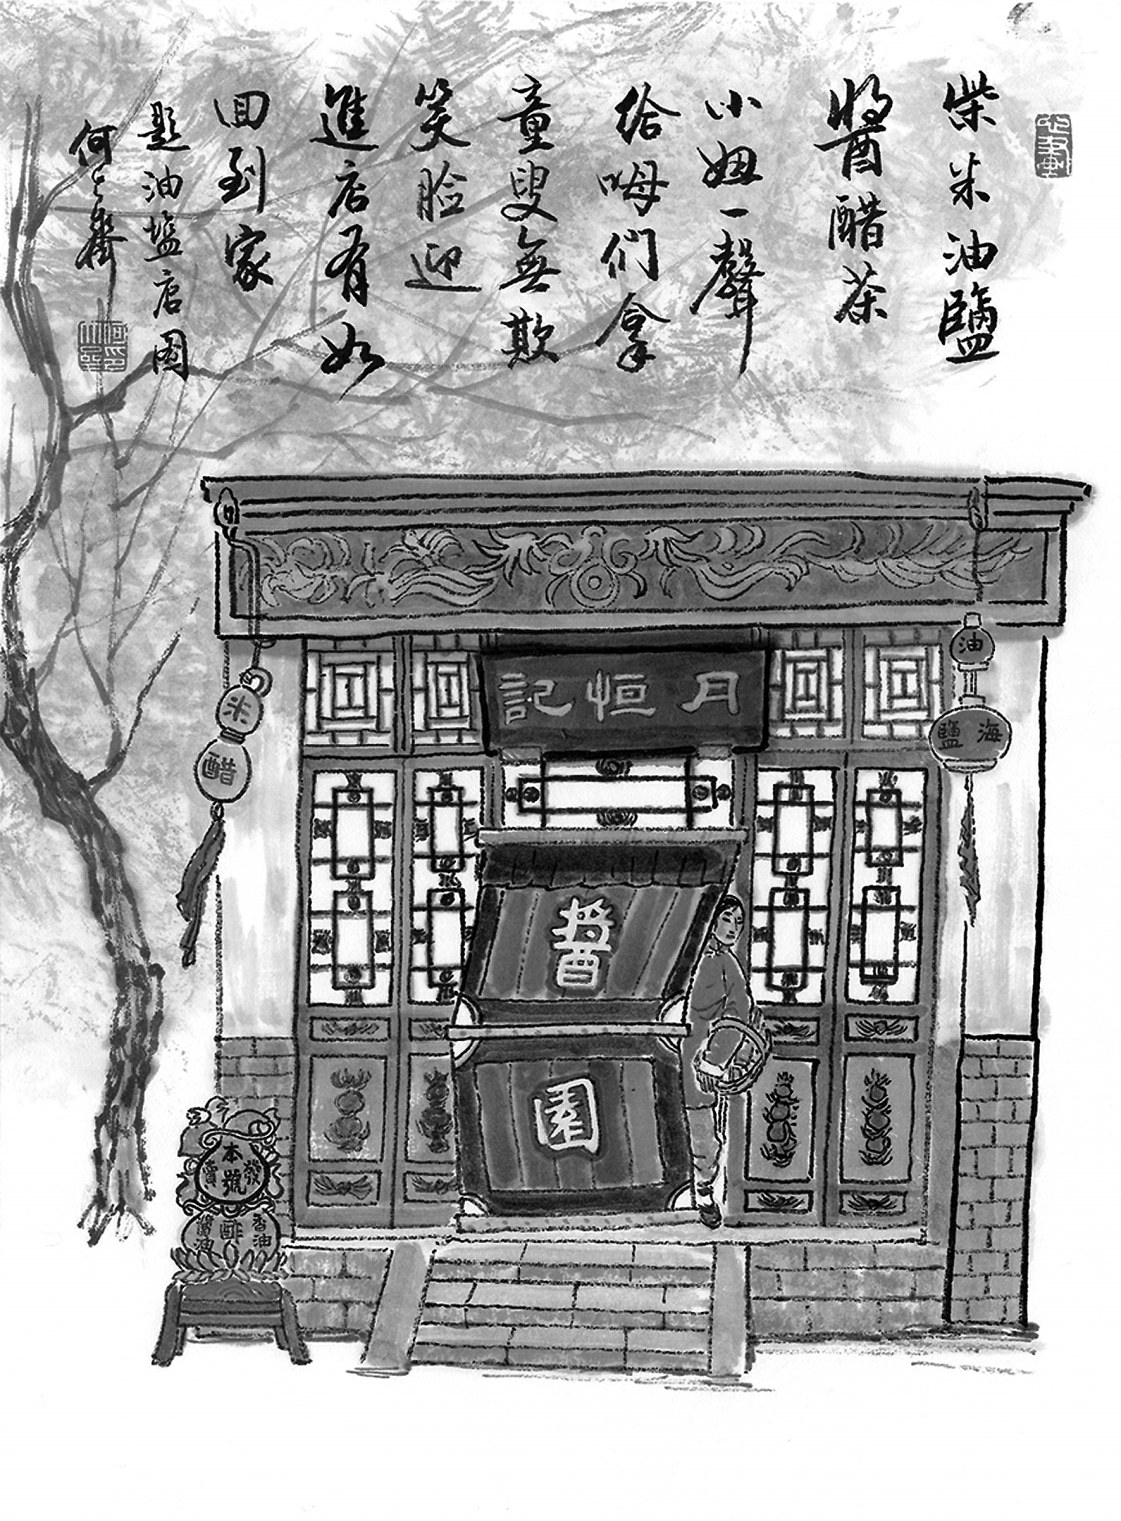 柴米油鹽
醬醋茶
小妞一聲
给呣们拿
童叟無欺
笑脸迎
進店有如
回到家
题油塩店图
何大齊
月恒記
油
海鹽
米
醋
醬
園
本號
發賣
香油
醋
醬油